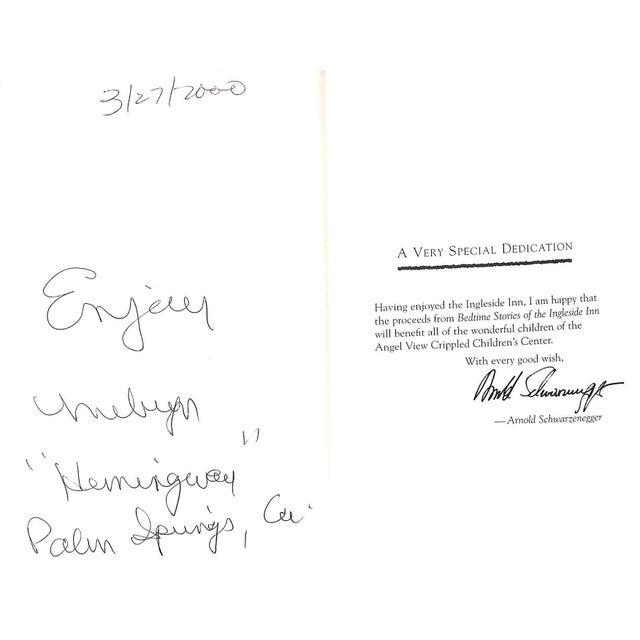 3/27/2000
Enjoy
Melvyn
"Hemingway"
Palm Springs, Ca.
A VERY SPECIAL DEDICATION
Having enjoyed the Ingleside Inn, I am happy that
the proceeds from Bedtime Stories of the Ingleside Inn
will benefit all of the wonderful children of the
Angel View Crippled Children's Center.
With every good wish,
Arnold Schwarzenegger
—Arnold Schwarzenegger